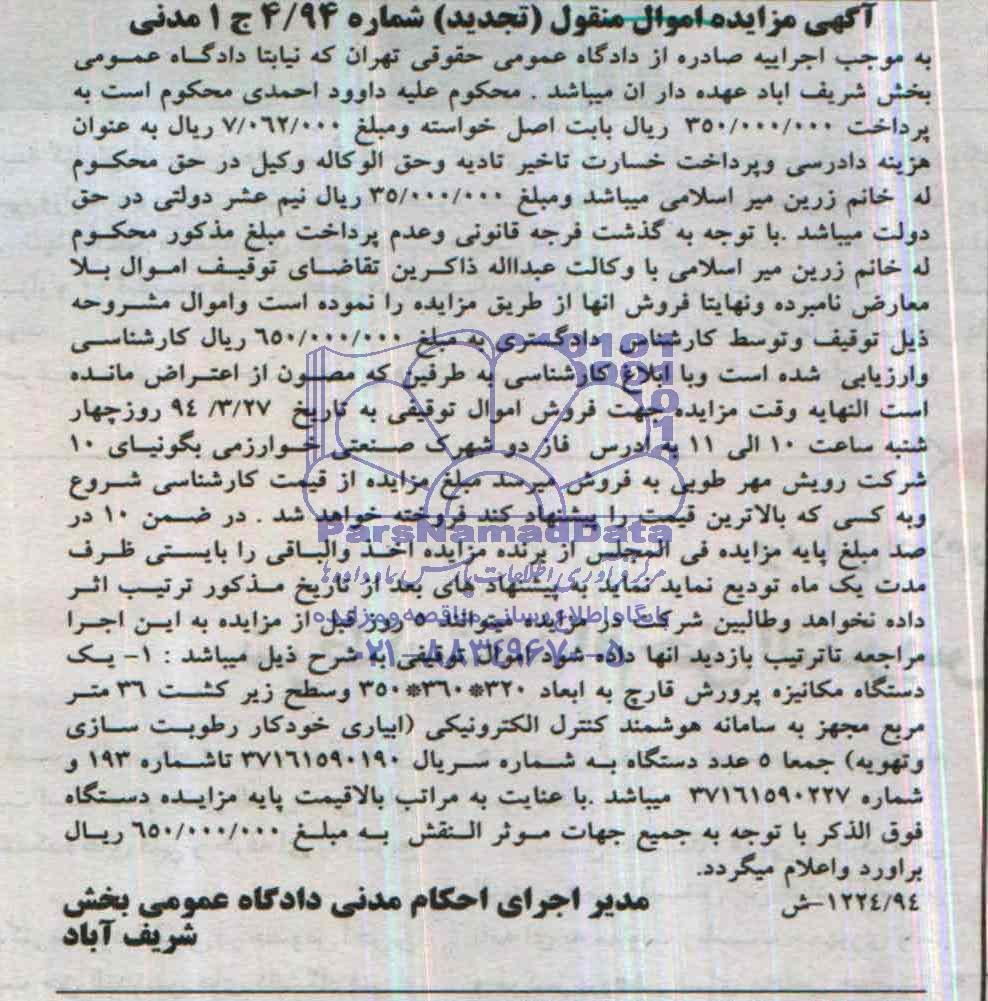 آگهی مزایده اموال منقول (تجدید) شماره ۴/۹۴ ج ۱ مدنی
به موجب اجراییه صادره از دادگاه عمومی حقوقی تهران که نیابتا دادگاه عمومی
بخش شریف اباد عهده دار ان میباشد . محکوم علیه داوود احمدی محکوم است به
پرداخت ۳۵۰/۰۰۰/۰۰۰ ریال بابت اصل خواسته ومبلغ ۷/۰۶۲/۰۰۰ ریال به عنوان
هزینه دادرسی وپرداخت خسارت تاخیر تادیه وحق الوکاله وکیل در حق محکوم
له خانم زرین میر اسلامی میباشد ومبلغ ۳۵/۰۰۰/۰۰۰ ریال نیم عشر دولتی در حق
دولت میباشد .با توجه به گذشت فرجه قانونی وعدم پرداخت مبلغ مذکور محکوم
له خانم زرین میر اسلامی با وکالت عبداله ذاکرین تقاضای توقیف اموال بلا
معارض نامبرده ونهایتا فروش انها از طریق مزایده را نموده است واموال مشروحه
ذیل توقیف وتوسط کارشناس دادگستری به مبلغ ۶۵۰/۰۰۰/۰۰۰ ریال کارشناسی
وارزیابی شده است وبا ابلاغ کارشناسی به طرفین که مصون از اعتراض مانده
است النهایه وقت مزایده جهت فروش اموال توقیفی به تاریخ ۹۴/۳/۲۷ روزچهار
شنبه ساعت ۱۰ الی ۱۱ به ادرس فاز دو شهرک صنعتی خوارزمی بگونیای ۱۰
شرکت رویش مهر طوبی به فروش میرسد مبلغ مزایده از قیمت کارشناسی شروع
وبه کسی که بالاترین قیمت را پیشنهاد کند فروخته خواهد شد . در ضمن ۱۰ در
صد مبلغ پایه مزایده فی المجلس از برنده مزایده اخذ والباقی را بایستی ظرف
مدت یک ماه تودیع نماید نماید به پیشنهاد های بعد از تاریخ مذکور ترتیب اثر
داده نخواهد وطالبین شرکت در مزایده میتوانند روز قبل از مزایده به این اجرا
مراجعه تاترتیب بازدید انها داده شود اموال توقیفی به شرح ذیل میباشد : ۱- یک
دستگاه مکانیزه پرورش قارچ به ابعاد ۳۲۰*۳۶۰*۳۵۰ وسطح زیر کشت ۳۶ متر
مربع مجهز به سامانه هوشمند کنترل الکترونیکی (ابیاری خودکار رطوبت سازی
وتهویه) جمعا ۵ عدد دستگاه به شماره سریال ۳۷۱۶۱۵۹۰۱۹۰ تاشماره ۱۹۳ و
شماره ۳۷۱۶۱۵۹۰۲۲۷ میباشد .با عنایت به مراتب بالاقیمت پایه مزایده دستگاه
فوق الذکر با توجه به جمیع جهات موثر النقش به مبلغ ۶۵۰/۰۰۰/۰۰۰ ریال
براورد واعلام میگردد.
۱۲۲۴/۹۴-ش مدیر اجرای احکام مدنی دادگاه عمومی بخش
شریف آباد
ParsNamadData
مرکز فرآوری اطلاعات پارس نماد داده‌ها
پایگاه اطلاع رسانی مناقصه و مزایده
۰۲۱-۸۸۳۴۹۶۷۰-۵